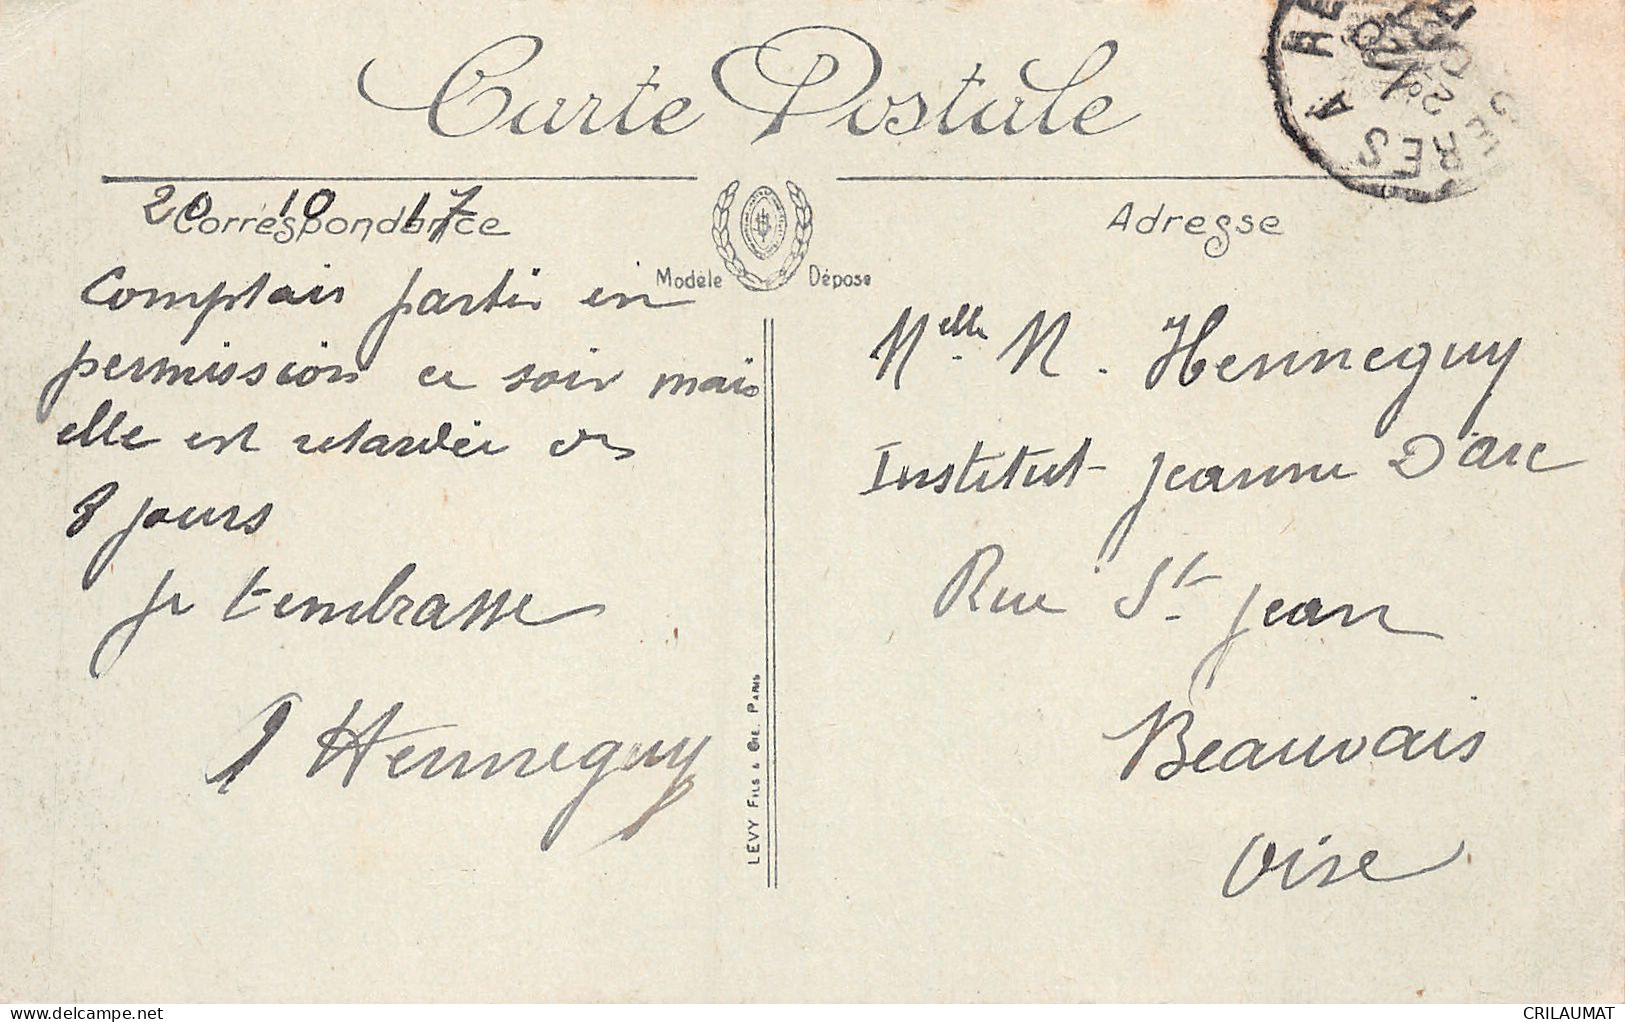 Carte Postale
20 10 17
Correspondance
Comptais partir en
permission ce soir mais
elle est retardée de
8 jours
Je t'embrasse
J Henneguy
Modèle Déposé
LEVY FILS & CIE. PARIS
RES A RE
Adresse
Melle M. Henneguy
Institut Jeanne D'Arc
Rue St Jean
Beauvais
Oise
delcampe.net
CRILAUMAT